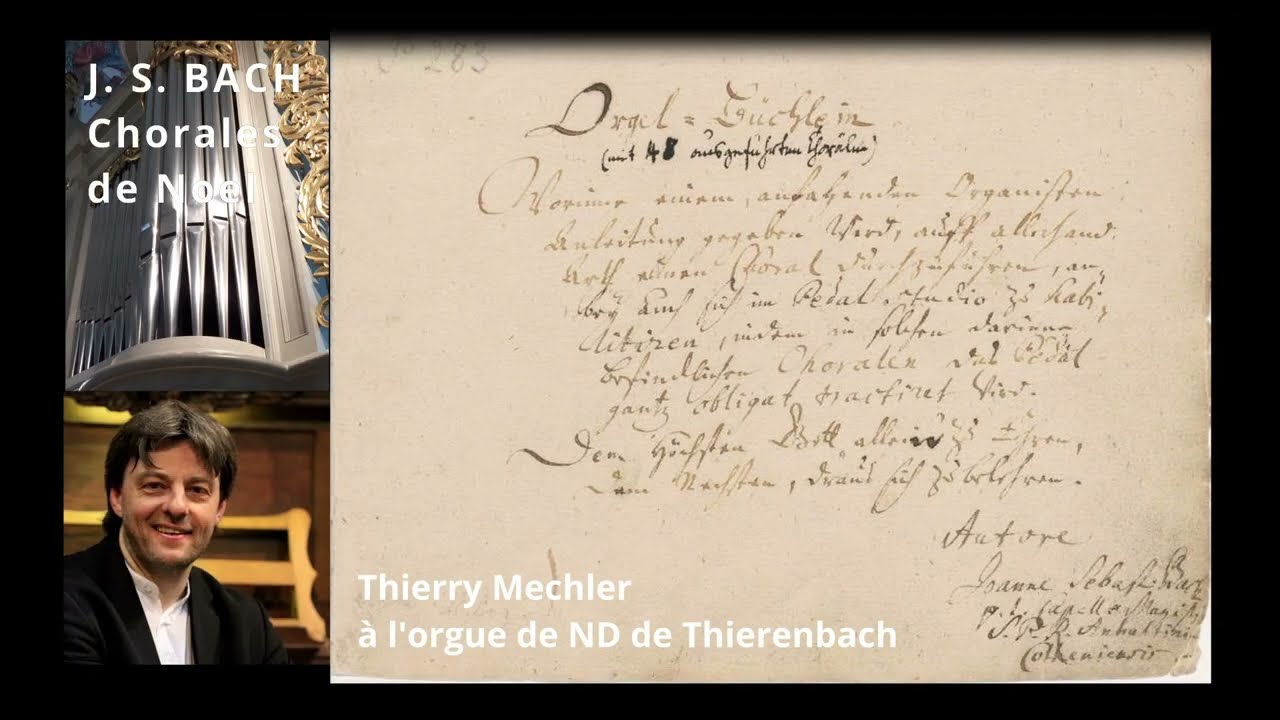 J. S. BACH
Chorales
de Noel
P 283
Orgel=Büchlein
(mit 48 ausgeführten Chorälen)
Worinne einem anfahenden Organisten
Anleitung gegeben wird, auff allerhand
Arth einen Choral durchzuführen, an-
bey auch sich im Pedal studio zu habi-
litiren, indem in solchen darinne
befindlichen Choralen das Pedal
gantz obligat tractiret wird.
Dem Höchsten Gott allein zu Ehren,
Dem Nechsten, draus sich zu belehren.
Autore
Joanne Sebast. Bach
p. t. Capellae Magist
S. P. R. Anhaltini-
Cotheniensis
Thierry Mechler
à l'orgue de ND de Thierenbach